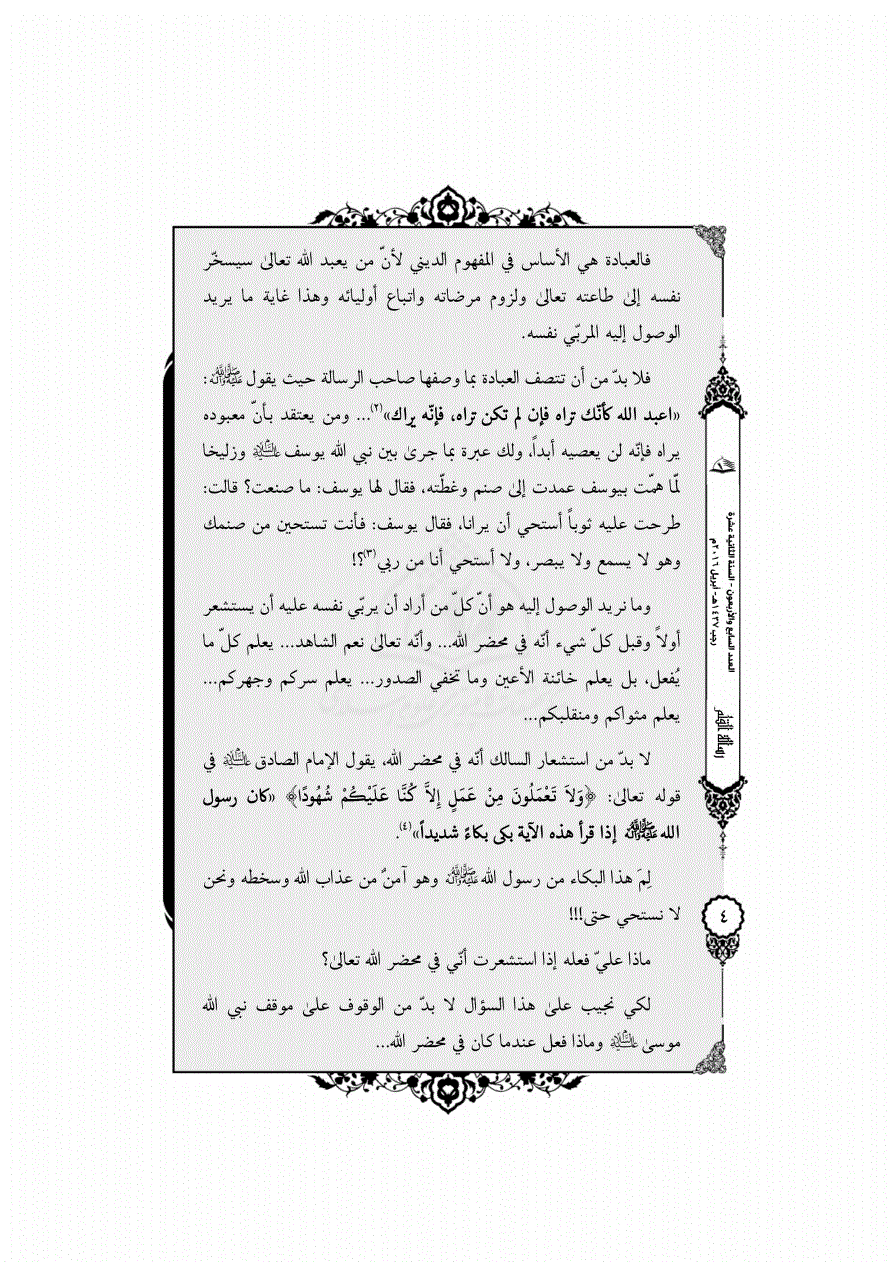 فالعبادة هي الأساس في المفهوم الديني لأنّ من يعبد الله تعالىٰ سيسخّر
نفسه إلىٰ طاعته تعالىٰ ولزوم مرضاته واتباع أوليائه وهذا غاية ما يريد
الوصول إليه المربّي نفسه.
فلا بدّ من أن تتصف العبادة بما وصفها صاحب الرسالة حيث يقول ﷺ:
«اعبد الله كأنّك تراه فإن لم تكن تراه، فإنّه يراك»(٢)... ومن يعتقد بأنّ معبوده
يراه فإنّه لن يعصيه أبداً، ولك عبرة بما جرىٰ بين نبي الله يوسف عليه السلام وزليخا
لمّا همّت بيوسف عمدت إلىٰ صنم وغطّته، فقال لها يوسف: ما صنعت؟ قالت:
طرحت عليه ثوباً أستحي أن يرانا، فقال يوسف: فأنت تستحين من صنمك
وهو لا يسمع ولا يبصر، ولا أستحي أنا من ربي(٣)؟!
وما نريد الوصول إليه هو أنّ كلّ من أراد أن يربّي نفسه عليه أن يستشعر
أولاً وقبل كلّ شيء أنّه في محضر الله... وأنّه تعالىٰ نعم الشاهد... يعلم كلّ ما
يُفعل، بل يعلم خائنة الأعين وما تخفي الصدور... يعلم سركم وجهركم...
يعلم مثواكم ومنقلبكم...
لا بدّ من استشعار السالك أنّه في محضر الله، يقول الإمام الصادق عليه السلام في
قوله تعالىٰ: ﴿وَلاَ تَعْمَلُونَ مِنْ عَمَلٍ إِلاَّ كُنَّا عَلَيْكُمْ شُهُودًا﴾ «كان رسول
الله ﷺ إذا قرأ هذه الآية بكى بكاءً شديداً»(٤).
لِمَ هذا البكاء من رسول الله ﷺ وهو آمنٌ من عذاب الله وسخطه ونحن
لا نستحي حتى!!!
ماذا عليّ فعله إذا استشعرت أنّي في محضر الله تعالىٰ؟
لكي نجيب علىٰ هذا السؤال لا بدّ من الوقوف علىٰ موقف نبي الله
موسىٰ عليه السلام وماذا فعل عندما كان في محضر الله...
العدد السابع والأربعون - السنة الثانية عشرة
رجب ١٤٣٧هـ - أبريل ٢٠١٦م
رسالة القلم
٤